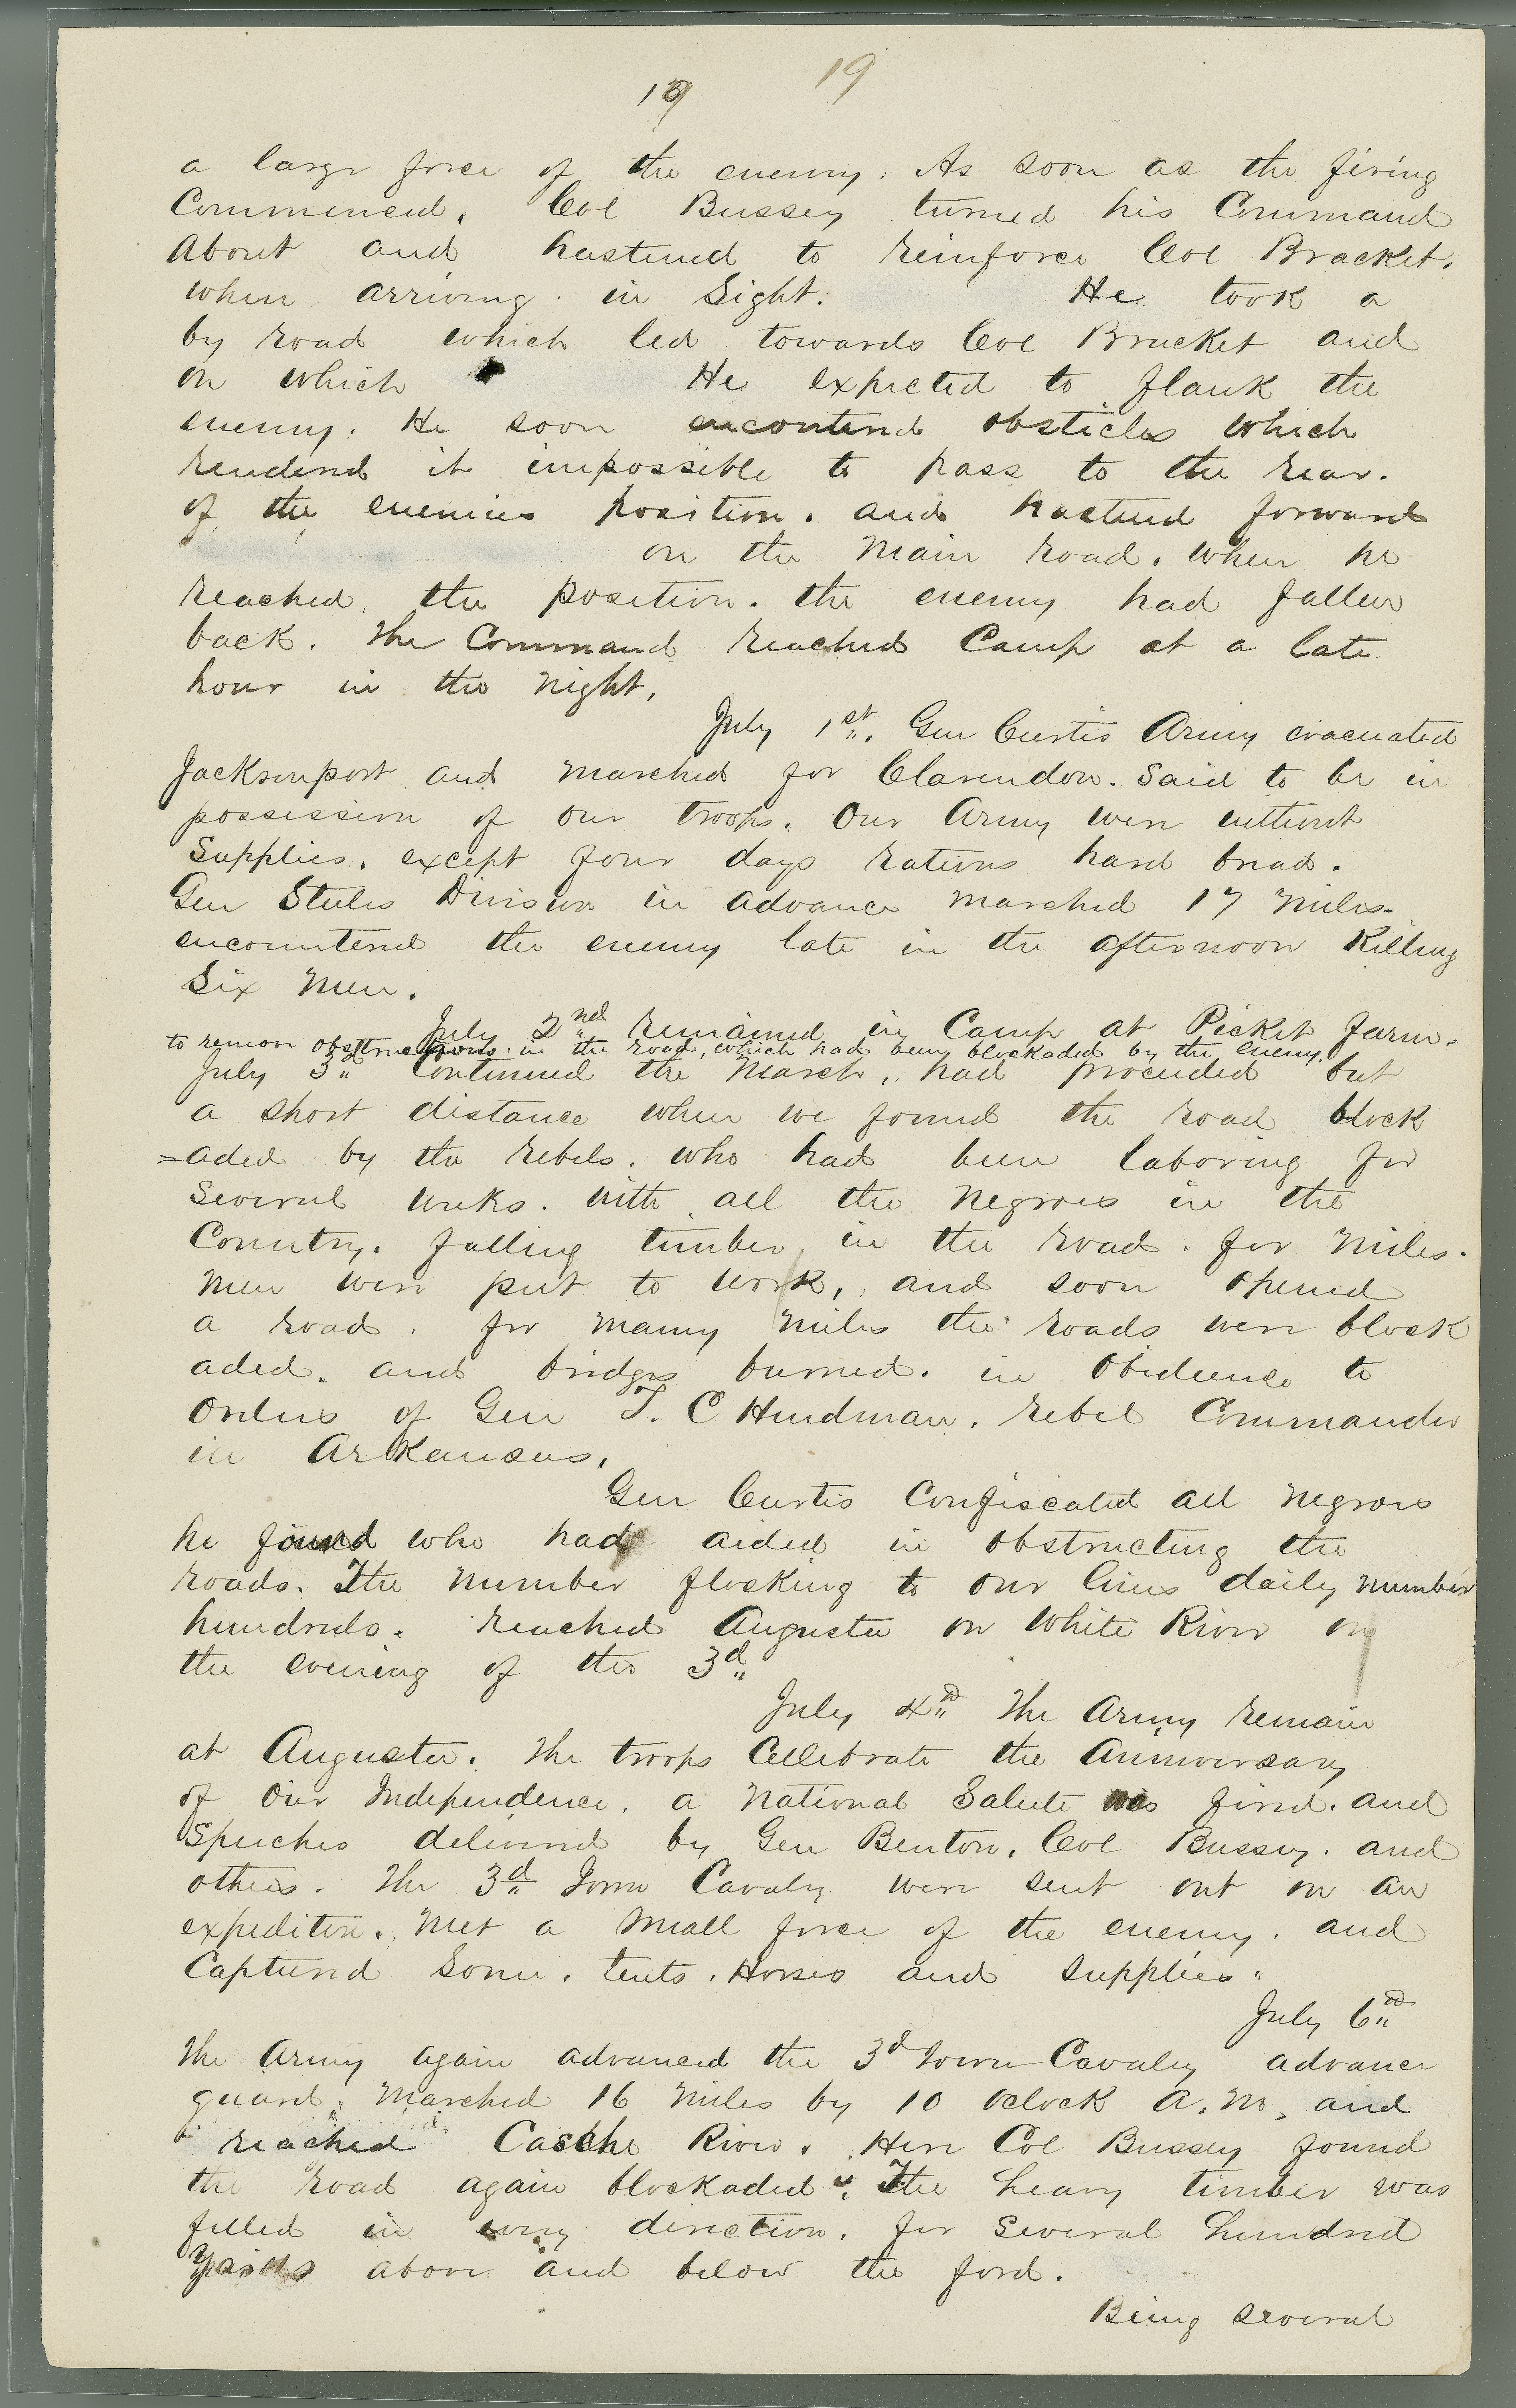 19
19
a large force of the enemy. As soon as the firing
Commenced, Col Bussey turned his Command
About and hastened to reinforce Col Bracket.
when arriving in Sight. He took a
by road which led towards Col Bracket and
on which He expected to flank the
enemy. He soon encontered obsticles which
rendered it impossible to pass to the rear.
of the enemies position. and hastened forward
on the Main road. when he
reached, the position. the enemy had fallen
back. The Command reached Camp at a late
hour in the Night,
July 1st. Gen Curtis Army evacuated
Jacksonport and marched for Clarendon. Said to be in
possession of our troops. Our Army were without
Supplies. except four days rations hard bread.
Gen Steeles Division in advance marched 17 miles.
encountered the enemy late in the afternoon Killing
Six Men.
July 2nd remained in Camp at Picket farm.
to remove obstructions in the road, which had been blockaded by the enemy.
July 3d Continued the March, had proceeded but
a short distance when we found the road block
=aded by the rebels. who had been laboring for
several weeks. with all the negroes in the
Country. falling timber in the road. for miles.
Men were put to work, and soon opened
a road. for many miles the roads were block
aded. and bridges burned. in obedience to
Orders of Gen T. C Hindman. rebel Commander
in Arkansas,
Gen Curtis Confiscated all negroes
he found who had aided in obstructing the
roads. The number flocking to our lines daily number
hundreds. reached Augusta on White River on
the evening of the 3d
July 4th The Army remain
at Augusta. The troops Cellebrate the Anniversary
of Our Independence. a National Salute was fired. and
Speeches delivered by Gen Benton. Col Bussey. and
others. The 3d Iowa Cavalry were sent out on an
expediton. Met a small force of the enemy. and
Captured Some. tents. Horses and supplies.
July 6th
The Army again advanced the 3d Iowa Cavalry advance
guard. Marched 16 miles by 10 Oclock A.M, and
reached Casche River. Here Col Bussey found
the road again blockaded. The heavy timber was
felled in every direction. for several hundred
yards above and below the ford.
Being several